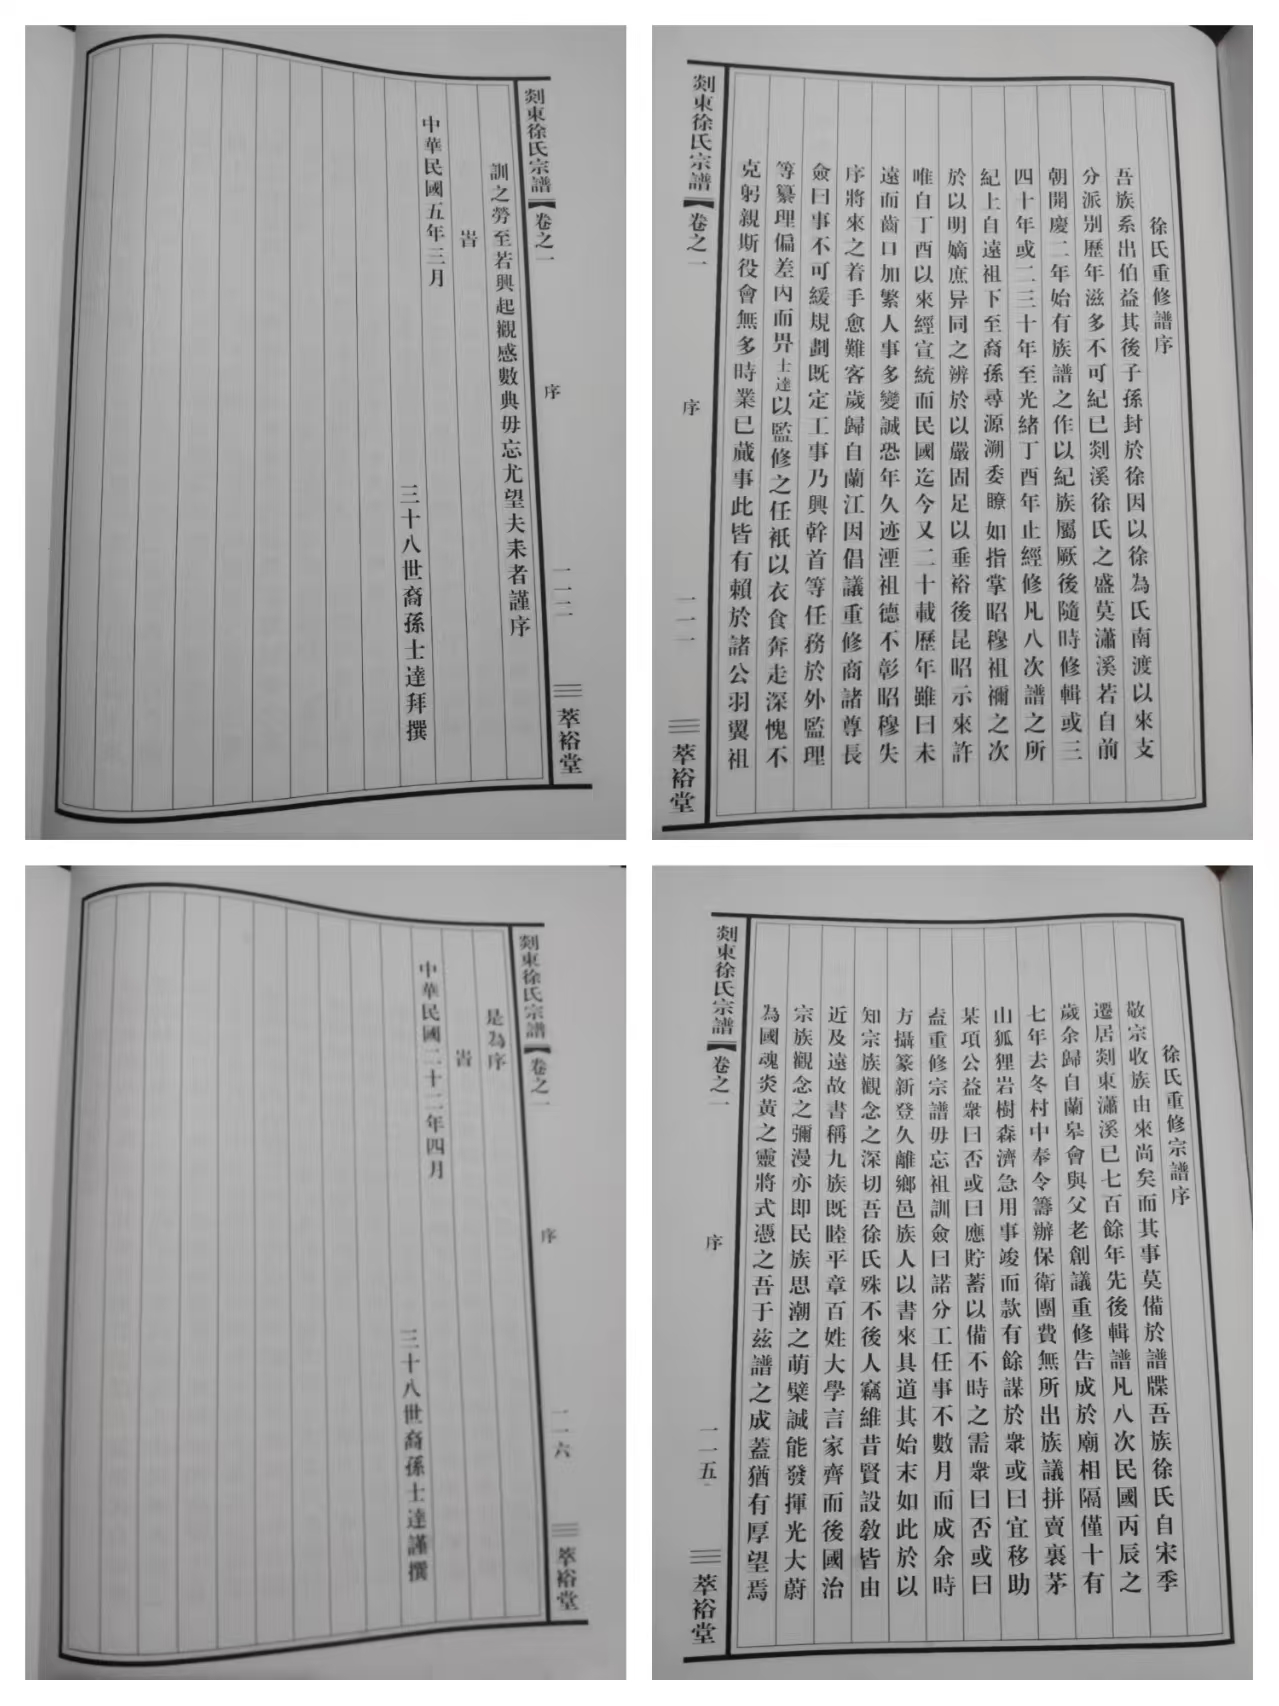 徐氏重修譜序
吾族系出伯益其後子孫封於徐因以徐為氏南渡以來支
分派別歷年滋多不可紀已剡溪徐氏之盛莫瀟溪若自前
朝開慶二年始有族譜之作以紀族屬厥後隨時修輯或三
四十年或二三十年至光緒丁酉年止經修凡八次譜之所
紀上自遠祖下至裔孫尋源溯委瞭如指掌昭穆祖禰之次
於以明嫡庶异同之辨於以嚴固足以垂裕後昆昭示來許
唯自丁酉以來經宣統而民國迄今又二十載歷年雖曰未
遠而齒口加繁人事多變誠恐年久迹湮祖德不彰昭穆失
序將來之着手愈難客歲歸自蘭江因倡議重修商諸尊長
僉曰事不可緩規劃既定工事乃興幹首等任務於外監理
等纂理偏差內而畀士達以監修之任衹以衣食奔走深愧不
克躬親斯役會無多時業已蕆事此皆有賴於諸公羽翼祖
剡東徐氏宗譜【卷之一 序 一一一 萃裕堂
剡東徐氏宗譜【卷之一 序 一一二 萃裕堂
訓之勞至若興起觀感數典毋忘尤望夫耒者謹序
旹
中華民國五年三月 三十八世裔孫士達拜撰
徐氏重修宗譜序
敬宗收族由來尚矣而其事莫備於譜牒吾族徐氏自宋季
遷居剡東瀟溪已七百餘年先後輯譜凡八次民國丙辰之
歲余歸自蘭皋會與父老創議重修告成於廟相隔僅十有
七年去冬村中奉令籌辦保衛團費無所出族議拼賣裏茅
山狐狸岩樹森濟急用事竣而款有餘謀於衆或曰宜移助
某項公益衆曰否或曰應貯蓄以備不時之需衆曰否或曰
盍重修宗譜毋忘祖訓僉曰諾分工任事不數月而成余時
方攝篆新登久離鄉邑族人以書來具道其始末如此於以
知宗族觀念之深切吾徐氏殊不後人竊維昔賢設教皆由
近及遠故書稱九族既睦平章百姓大學言家齊而後國治
宗族觀念之彌漫亦即民族思潮之萌櫱誠能發揮光大蔚
為國魂炎黃之靈將式憑之吾于茲譜之成蓋猶有厚望焉
剡東徐氏宗譜【卷之一 序 一一五 萃裕堂
剡東徐氏宗譜【卷之一 序 一一六 萃裕堂
是為序
旹
中華民國二十二年四月 三十八世裔孫士達謹撰